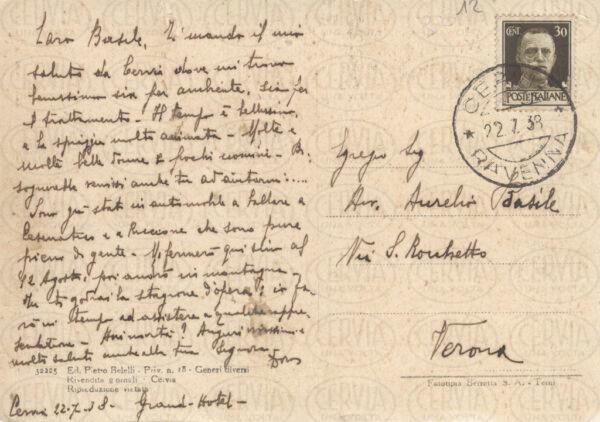 12
Caro Basile, Ti mando il mio
saluto da Cervia dove mi trovo
benissimo sia per ambiente, sia per
il trattamento - Il tempo è bellissimo
e la spiaggia molto animata - Molte e
molte belle donne e pochi uomini - Bi-
sognerebbe venissi anche tu ad aiutarmi.....
Sono già stato in automobile a ballare a
Cesenatico e a Riccione che sono pure
pieno di gente - Mi fermerò qui sino al
12 Agosto, poi andrò in montagna -
tu ti godrai la stagione d'opera; io fa-
rò in tempo ad assistere a qualche rappre-
sentazione - Auguri vivissimi e
molti saluti anche alla tua Signora -
32205 Ed. Pietro Belelli - Priv. n. 18 - Generi diversi
Rivendita giornali - Cervia
Riproduzione vietata
Cervia 22-7-38 - Grand-Hotel -
CENT. 30
POSTE ITALIANE
22.7.38
RAVENNA
Egregio Sig
Avv. Aurelio Basile
Via S. Rocchetto
Verona
Fototipia Berretta S. A. - Terni
CERVIA